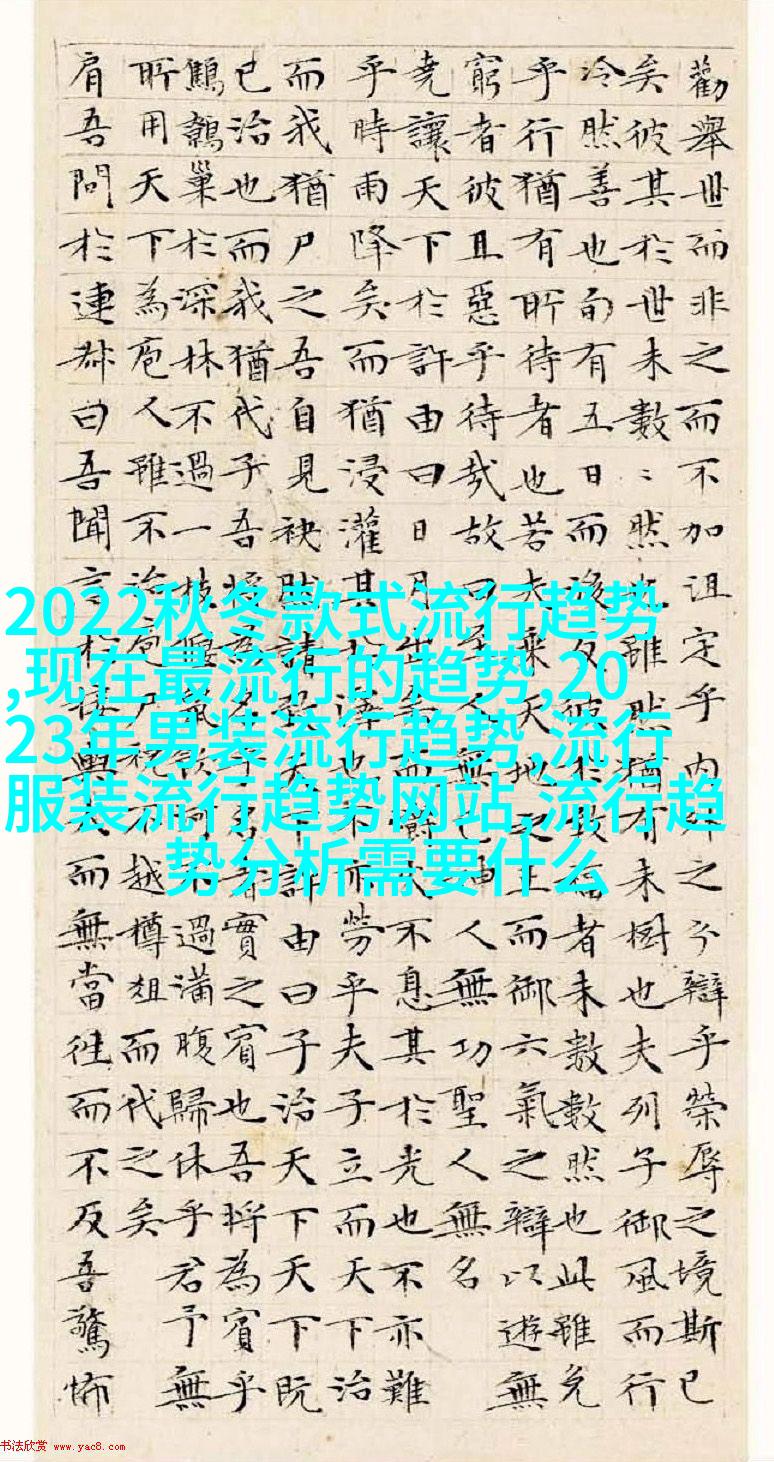 勸舉世而非之而不加沮定乎内外之分辯乎榮辱之境斯已
矣彼其於世未數〻然也雖然猶有未樹也夫列子御風而行
冷然善也旬有五日而後反彼於致福者未數數然也此雖免
乎行猶有所待者也若夫乘天地之正而御六氣之辯以遊無
窮者彼且惡乎待哉故曰至人無己神人無功聖人無名
堯讓天下於許由曰日月出矣而爝火不息其於光也不亦難
乎時雨降矣而猶浸灌其於澤也不亦勞乎夫子立而天下治
而我猶尸之吾自見缺然請致天下許由曰子治天下天下既
已治也而我猶代子吾將為名乎名者實之賓也吾將為賓乎
鷦鷯巢於深林不過一枝偃鼠飲河不過滿腹歸休乎君予無
所用天下為庖人雖不治庖尸祝不越樽俎而代之矣
肩吾問於連叔曰吾聞言於接輿大而無當往而不反吾驚怖
2022秋冬款式流行趋势
,现在最流行的趋势,20
23年男装流行趋势,流行
服装流行趋势网站,流行趋
势分析需要什么
书法欣赏 www.yac8.com